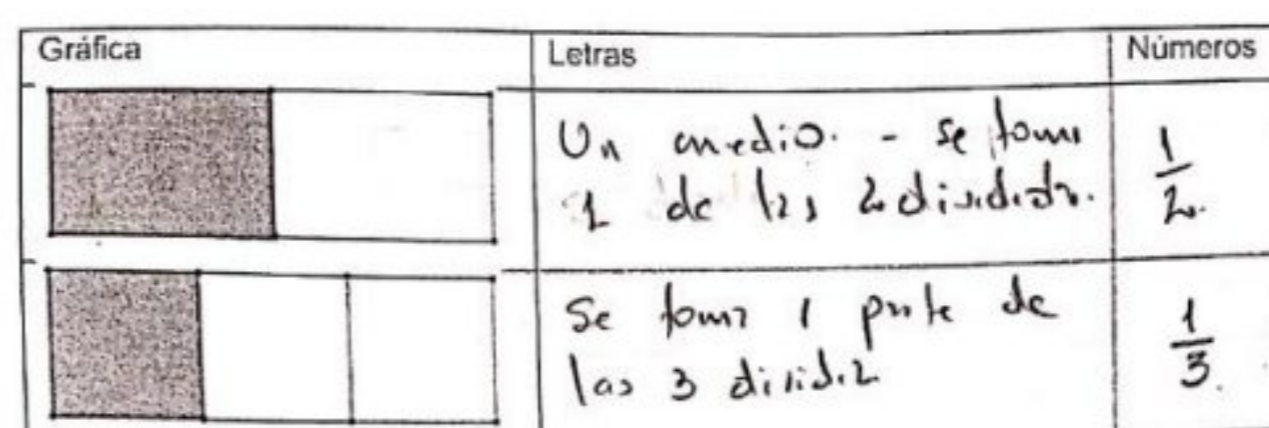 Gráfica
Letras
Números
Un medio. - Se toma
1 de las 2 dividida.
1
2.
Se toma 1 parte de
las 3 dividida
1
3.